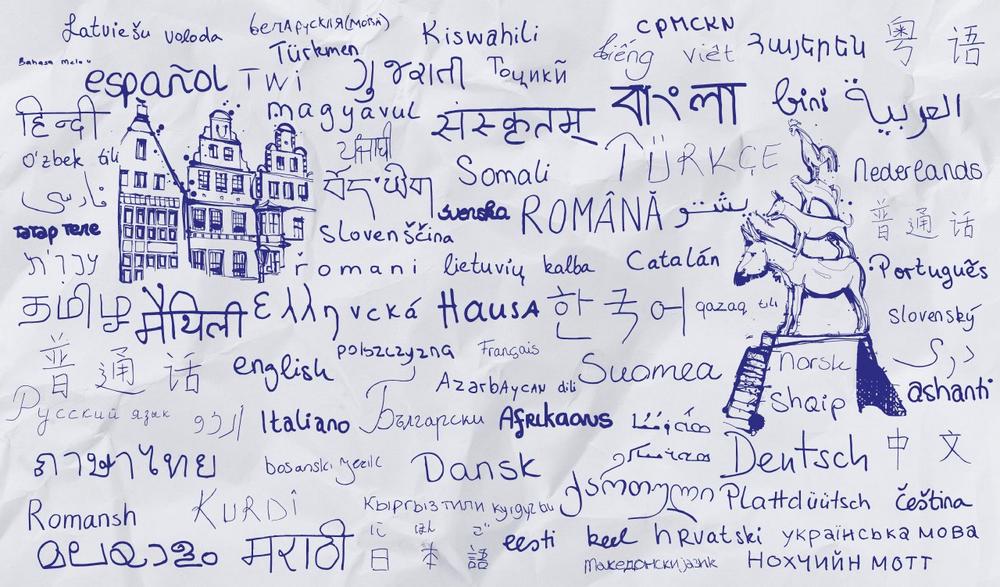 Latviešu valoda
беларуская(мова)
Türkmen
Kiswahili
српски
tiếng việt
Հայերեն
粤语
español
Twi
ગુજરાતી
Тоҷикӣ
हिन्दी
magyarul
संस्कृतम्
বাংলা
bini
العربية
O'zbek tili
ਪੰਜਾਬੀ
Somali
TÜRKÇE
Nederlands
فارسی
བོད་ཡིག
svenska
ROMÂNĂ
پښتو
普通话
татар теле
Slovenščina
עברית
romani
lietuvių kalba
Catalán
Português
தமிழ்
मैथिली
Ελληνικά
Hausa
한국어
qazaq tili
Slovenský
普通话
english
polszczyzna
Français
Azərbaycan dili
Suomea
Norsk
دری
Русский язык
اردو
Italiano
Български
Afrikaans
Shqip
ashanti
ภาษาไทย
bosanski jezik
Dansk
Deutsch
中文
Romansh
KURDÎ
Кыргыз тили
ქართული
Plattdüütsch
čeština
മലയാളം
मराठी
にほんご
日本語
eesti keel
hrvatski
українська мова
Македонски јазик
Нохчийн мотт